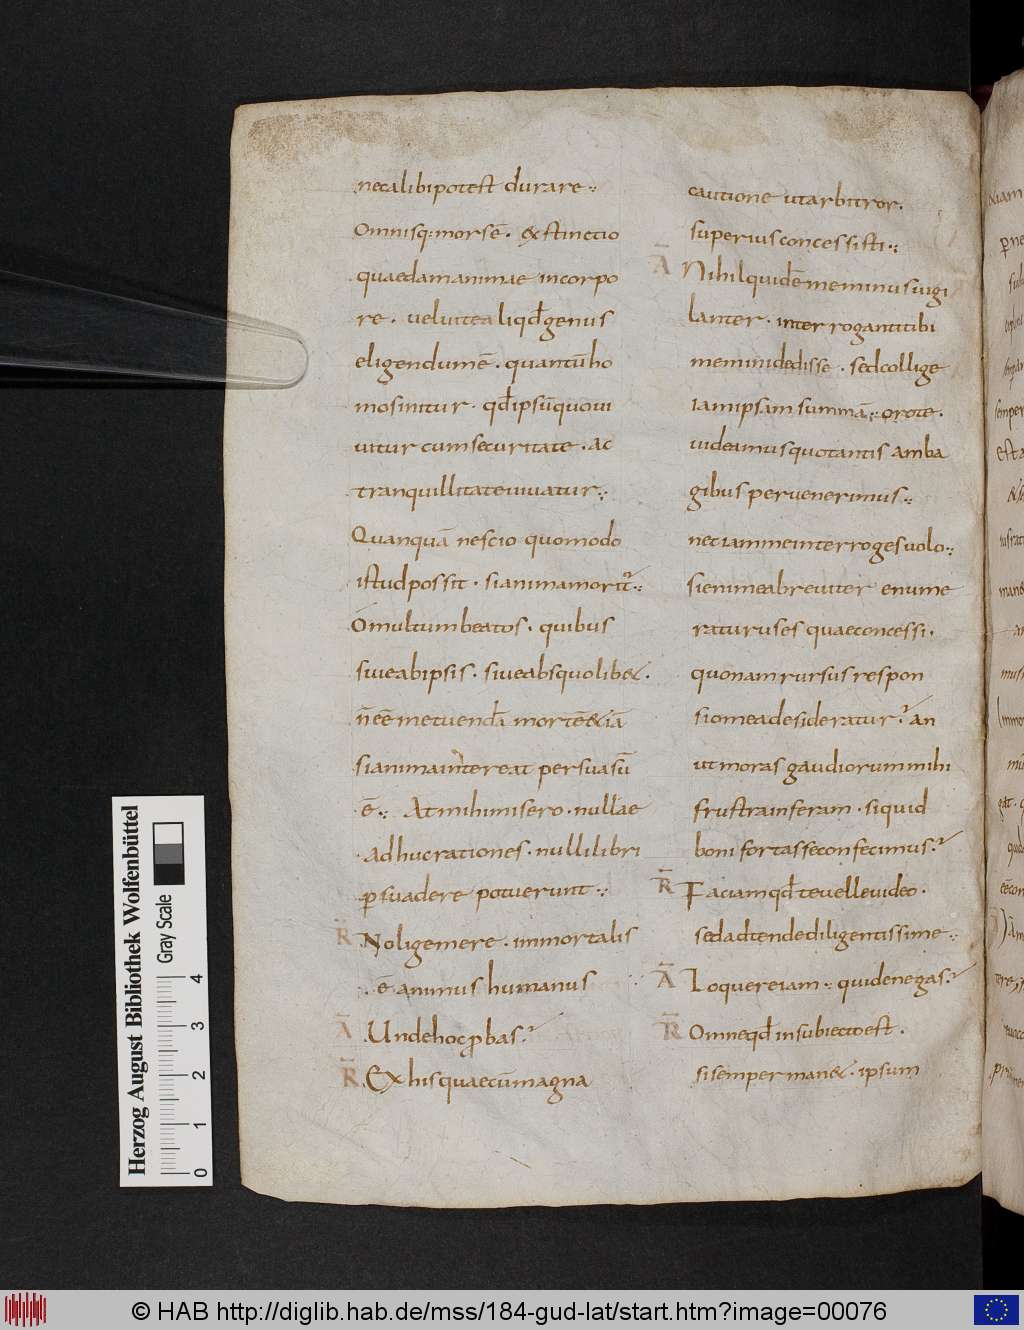 necalibi potest durare
Omnisq; mors ē. extinctio
quaedam animae in corpo
re. velvitea liqd genus
eligendum ē. quantū ho
mo sinitur. qd ipsū quo vi
vitur cum securitate. ac
tranquillitate vivatur
Quanquā nescio quomodo
istud possit. si anima morit
O multum beatos. quibus
sive ab ipsis. sive abs quolib&.
n̄ eē metuendā mortē & iā
si anima intereat persuasū
ē. At mihi misero. nullae
adhuc rationes. nulli libri
psuadere potuerunt
R̄ Noli gemere. inmortalis
ē animus humanus
Ā Unde hoc pbas?
R̄ Ex his quae cū magna
cautione ut arbitror.
superius concessisti
Ā Nihil quidē me minus vigi
lanter. interroganti tibi
memini dedisse. sed collige
iam ipsam summā; oro te.
videamus quo tantis amba
gibus pervenerimus
nec iam me interroges volo
si enim ea breviter enume
raturus es quae concessi.
quonam rursus respon
sio mea desideratur? an
ut moras gaudiorum mihi
frustra inferam. si quid
boni fortasse confecimus?
R̄ Faciam qd te velle video.
sed adtende diligentissime
Ā Loquere iam quid enegas?
R̄ Omne qd in subiecto est.
si semper man&. ipsum
Herzog August Bibliothek Wolfenbüttel
Gray Scale
0 1 2 3 4
© HAB http://diglib.hab.de/mss/184-gud-lat/start.htm?image=00076